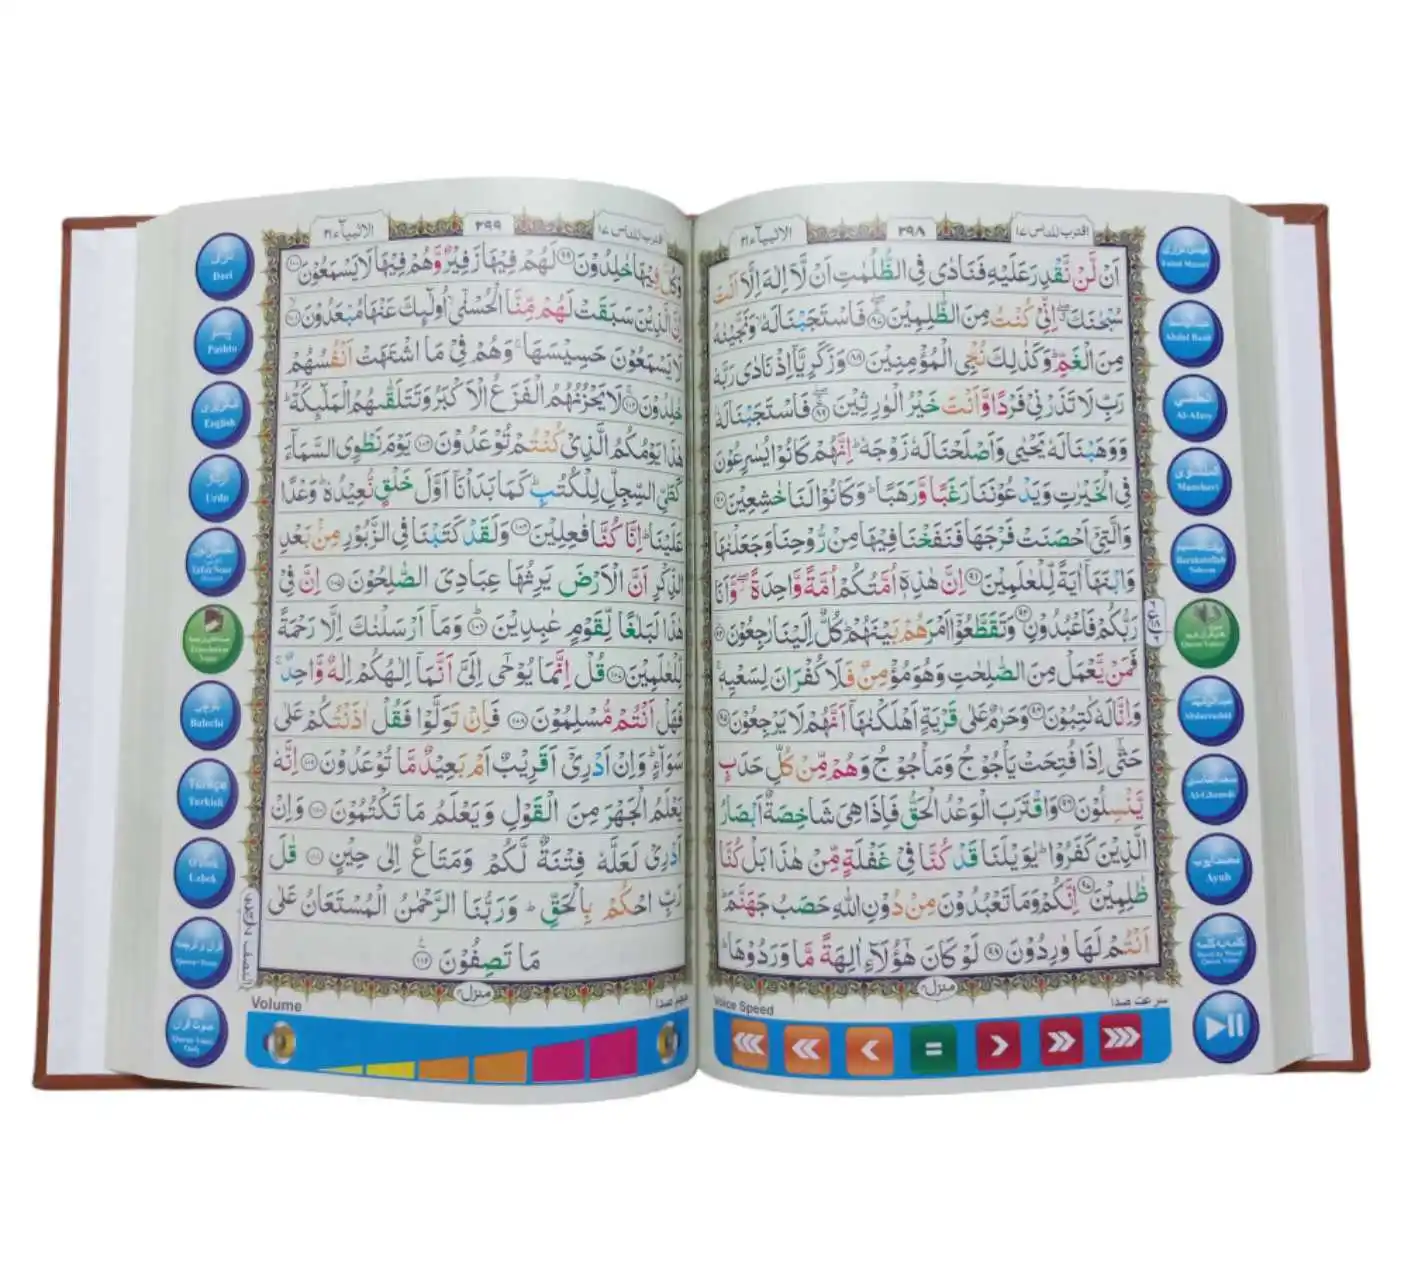 اقترب للناس ١٧
٣٩٨
الانبيآء ٢١
اَنْ لَّنْ نَّقْدِرَ عَلَيْهِ فَنَادٰى فِى الظُّلُمٰتِ اَنْ لَّاۤ اِلٰهَ اِلَّاۤ اَنْتَ
سُبْحٰنَكَ ۖ اِنِّىْ كُنْتُ مِنَ الظّٰلِمِيْنَ ﴿۸۷﴾ فَاسْتَجَبْنَا لَهٗ ۙ وَنَجَّيْنٰهُ
مِنَ الْغَمِّ ؕ وَكَذٰلِكَ نُـْۨجِى الْمُؤْمِنِيْنَ ﴿۸۸﴾ وَزَكَرِيَّاۤ اِذْ نَادٰى رَبَّهٗ
رَبِّ لَا تَذَرْنِىْ فَرْدًا وَّاَنْتَ خَيْرُ الْوٰرِثِيْنَ ﴿۸۹﴾ فَاسْتَجَبْنَا لَهٗ
وَوَهَبْنَا لَهٗ يَحْيٰى وَاَصْلَحْنَا لَهٗ زَوْجَهٗ ؕ اِنَّهُمْ كَانُوْا يُسٰرِعُوْنَ
فِى الْخَيْرٰتِ وَيَدْعُوْنَنَا رَغَبًا وَّرَهَبًا ؕ وَكَانُوْا لَنَا خٰشِعِيْنَ ﴿۹۰﴾
وَالَّتِىْۤ اَحْصَنَتْ فَرْجَهَا فَنَفَخْنَا فِيْهَا مِنْ رُّوْحِنَا وَجَعَلْنٰهَا
وَابْنَهَاۤ اٰيَةً لِّلْعٰلَمِيْنَ ﴿۹۱﴾ اِنَّ هٰذِهٖۤ اُمَّتُكُمْ اُمَّةً وَّاحِدَةً ۖ وَّاَنَا
رَبُّكُمْ فَاعْبُدُوْنِ ﴿۹۲﴾ وَتَقَطَّعُوْۤا اَمْرَهُمْ بَيْنَهُمْ ؕ كُلٌّ اِلَيْنَا رٰجِعُوْنَ ﴿۹۳﴾
فَمَنْ يَّعْمَلْ مِنَ الصّٰلِحٰتِ وَهُوَ مُؤْمِنٌ فَلَا كُفْرَانَ لِسَعْيِهٖ ۚ
وَاِنَّا لَهٗ كٰتِبُوْنَ ﴿۹۴﴾ وَحَرٰمٌ عَلٰى قَرْيَةٍ اَهْلَكْنٰهَاۤ اَنَّهُمْ لَا يَرْجِعُوْنَ ﴿۹۵﴾
حَتّٰۤى اِذَا فُتِحَتْ يَاْجُوْجُ وَمَاْجُوْجُ وَهُمْ مِّنْ كُلِّ حَدَبٍ
يَّنْسِلُوْنَ ﴿۹۶﴾ وَاقْتَرَبَ الْوَعْدُ الْحَقُّ فَاِذَا هِىَ شَاخِصَةٌ اَبْصَارُ
الَّذِيْنَ كَفَرُوْا ؕ يٰوَيْلَنَا قَدْ كُنَّا فِىْ غَفْلَةٍ مِّنْ هٰذَا بَلْ كُنَّا
ظٰلِمِيْنَ ﴿۹۷﴾ اِنَّكُمْ وَمَا تَعْبُدُوْنَ مِنْ دُوْنِ اللّٰهِ حَصَبُ جَهَنَّمَ ؕ
اَنْتُمْ لَهَا وٰرِدُوْنَ ﴿۹۸﴾ لَوْ كَانَ هٰۤؤُلَاۤءِ اٰلِهَةً مَّا وَرَدُوْهَا ؕ
منزل ٤
Voice Speed
سرعت صدا
Abdul Basit
Al-Afasy
Manshavi
Barakatullah Saleem
Quran Voice
Abdurrashid
Al-Ghamdi
محمد ایوب
Ayub
کلمه به کلمه
اقترب للناس ١٧
٣٩٩
الانبيآء ٢١
وَكُلٌّ فِيْهَا خٰلِدُوْنَ ﴿۹۹﴾ لَهُمْ فِيْهَا زَفِيْرٌ وَّهُمْ فِيْهَا لَا يَسْمَعُوْنَ ﴿۱۰۰﴾
اِنَّ الَّذِيْنَ سَبَقَتْ لَهُمْ مِّنَّا الْحُسْنٰٓى ۙ اُولٰٓئِكَ عَنْهَا مُبْعَدُوْنَ ﴿۱۰۱﴾
لَا يَسْمَعُوْنَ حَسِيْسَهَا ۚ وَهُمْ فِىْ مَا اشْتَهَتْ اَنْفُسُهُمْ
خٰلِدُوْنَ ﴿۱۰۲﴾ لَا يَحْزُنُهُمُ الْفَزَعُ الْاَكْبَرُ وَتَتَلَقّٰٮهُمُ الْمَلٰٓئِكَةُ ؕ
هٰذَا يَوْمُكُمُ الَّذِىْ كُنْتُمْ تُوْعَدُوْنَ ﴿۱۰۳﴾ يَوْمَ نَطْوِى السَّمَآءَ
كَطَىِّ السِّجِلِّ لِلْكُتُبِ ؕ كَمَا بَدَاْنَاۤ اَوَّلَ خَلْقٍ نُّعِيْدُهٗ ؕ وَعْدًا
عَلَيْنَا ؕ اِنَّا كُنَّا فٰعِلِيْنَ ﴿۱۰۴﴾ وَلَقَدْ كَتَبْنَا فِى الزَّبُوْرِ مِنْۢ بَعْدِ
الذِّكْرِ اَنَّ الْاَرْضَ يَرِثُهَا عِبَادِىَ الصّٰلِحُوْنَ ﴿۱۰۵﴾ اِنَّ فِىْ
هٰذَا لَبَلٰغًا لِّقَوْمٍ عٰبِدِيْنَ ﴿۱۰۶﴾ وَمَاۤ اَرْسَلْنٰكَ اِلَّا رَحْمَةً
لِّلْعٰلَمِيْنَ ﴿۱۰۷﴾ قُلْ اِنَّمَا يُوْحٰٓى اِلَىَّ اَنَّمَاۤ اِلٰهُكُمْ اِلٰهٌ وَّاحِدٌ ۚ
فَهَلْ اَنْتُمْ مُّسْلِمُوْنَ ﴿۱۰۸﴾ فَاِنْ تَوَلَّوْا فَقُلْ اٰذَنْتُكُمْ عَلٰى
سَوَآءٍ ؕ وَاِنْ اَدْرِىْۤ اَقَرِيْبٌ اَمْ بَعِيْدٌ مَّا تُوْعَدُوْنَ ﴿۱۰۹﴾ اِنَّهٗ
يَعْلَمُ الْجَهْرَ مِنَ الْقَوْلِ وَيَعْلَمُ مَا تَكْتُمُوْنَ ﴿۱۱۰﴾ وَاِنْ
اَدْرِىْ لَعَلَّهٗ فِتْنَةٌ لَّكُمْ وَمَتَاعٌ اِلٰى حِيْنٍ ﴿۱۱۱﴾ قٰلَ
رَبِّ احْكُمْ بِالْحَقِّ ؕ وَرَبُّنَا الرَّحْمٰنُ الْمُسْتَعَانُ عَلٰى
مَا تَصِفُوْنَ ﴿۱۱۲﴾
منزل ٤
Volume
حجم صدا
دری
Dari
پښتو
Pashto
انگلیزی
English
اردو
Urdu
Tafsir Noor
Translation Voice
بلوچی
Balochi
Türkçe
Turkish
O'zbek
Uzbek
قرآن و ترجمه
صوت قرآن
Quran Voice Only